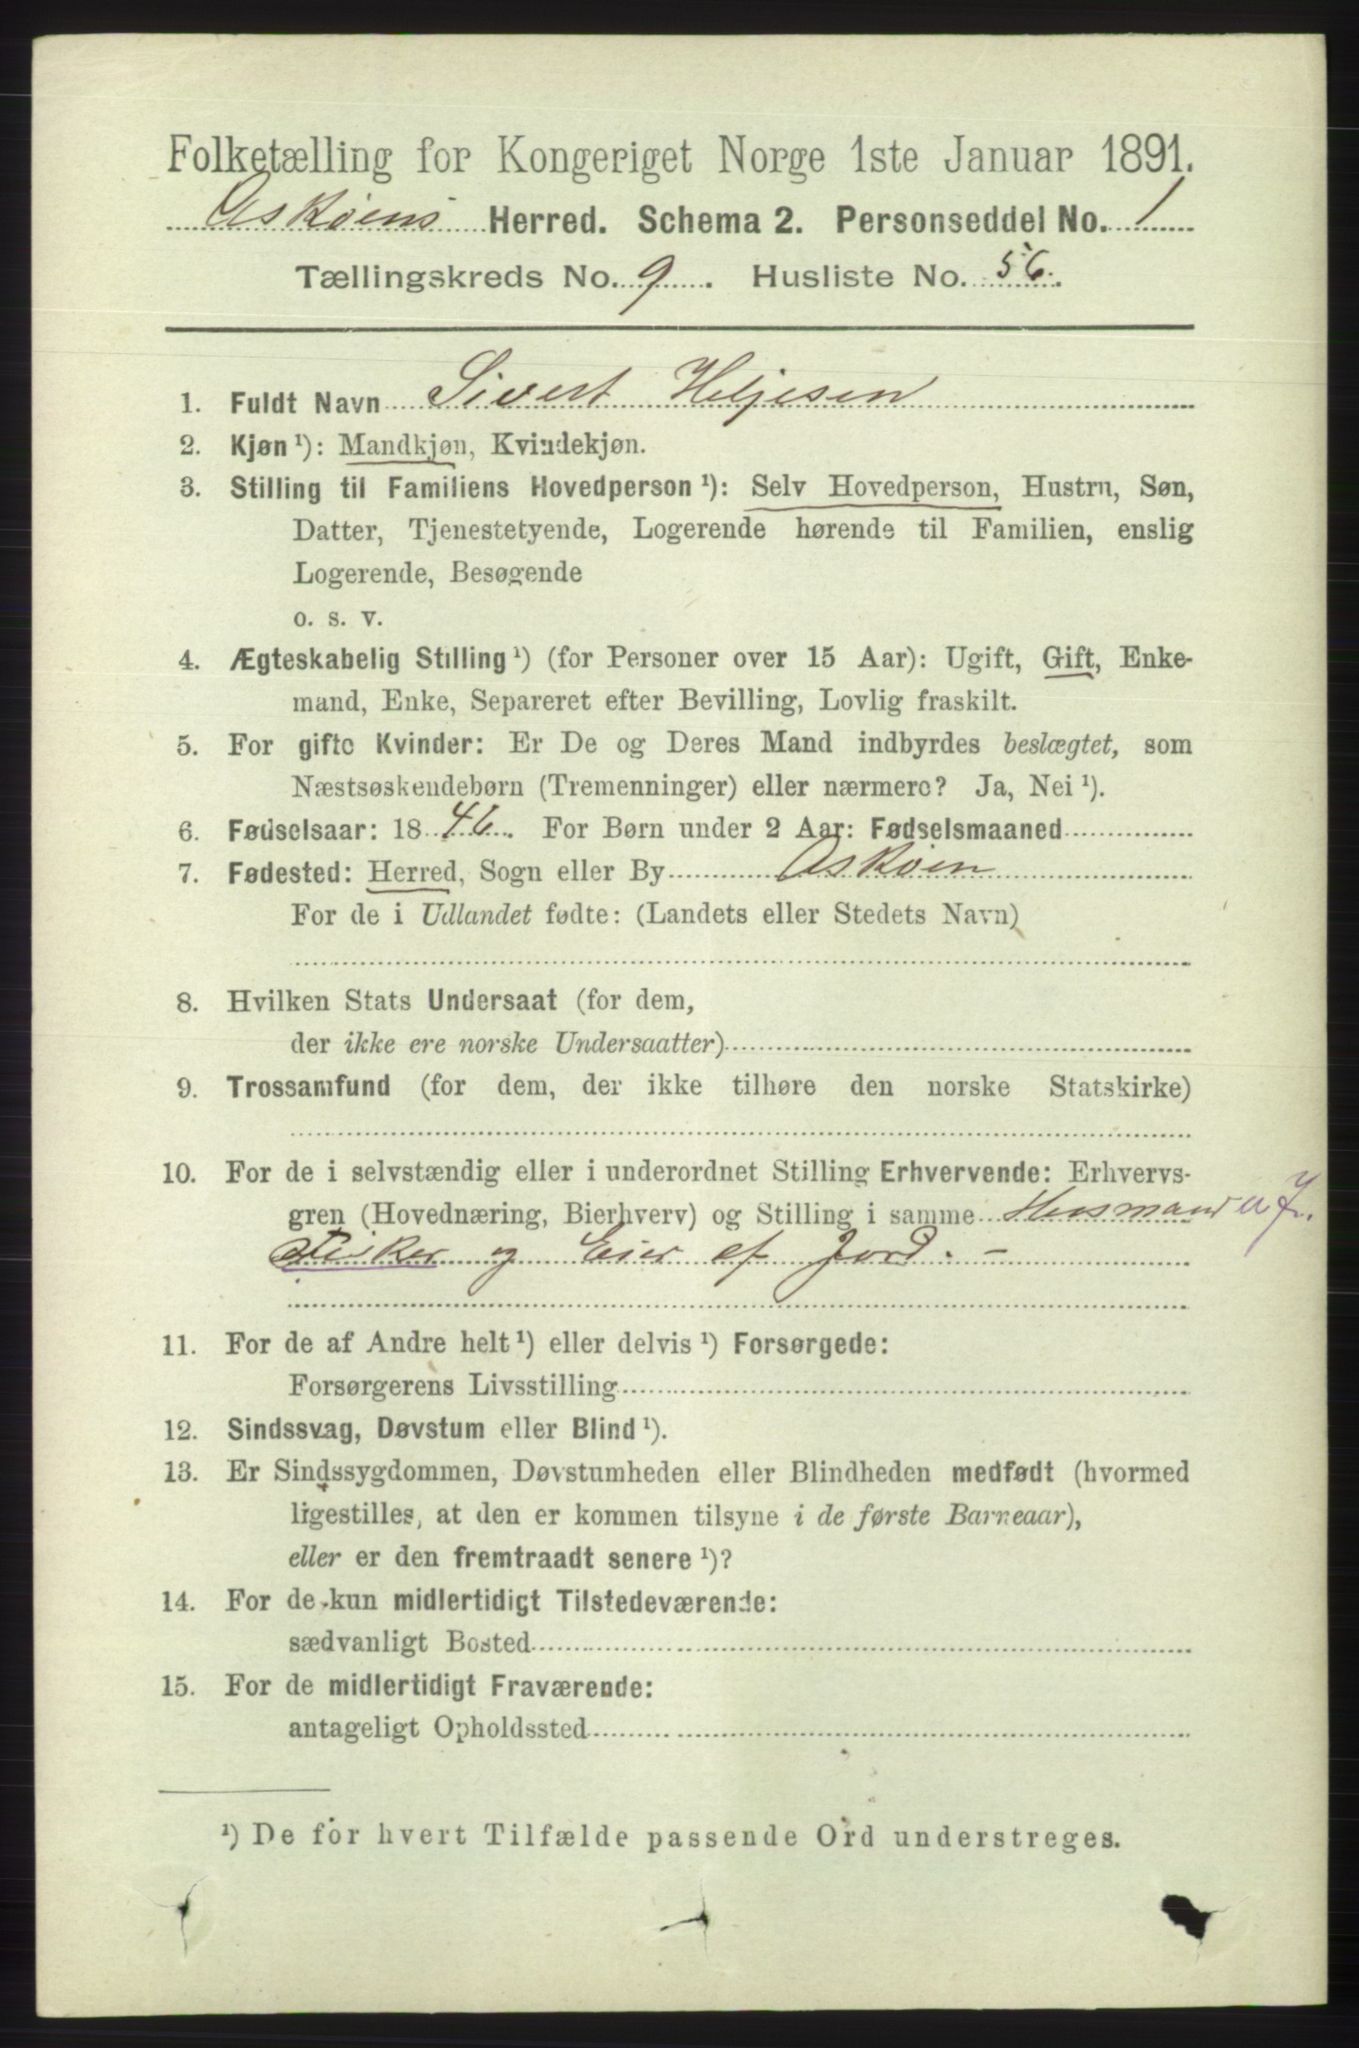 Folketælling for Kongeriget Norge 1ste Januar 1891.
Askøens Herred. Schema 2. Personseddel No. 1
Tællingskreds No. 9. Husliste No. 56.
1. Fuldt Navn Sivert Heljesen
2. Kjøn ¹): Mandkjøn, Kvindekjøn.
3. Stilling til Familiens Hovedperson ¹): Selv Hovedperson, Hustru, Søn,
Datter, Tjenestetyende, Logerende hørende til Familien, enslig
Logerende, Besøgende
o. s. v.
4. Ægteskabelig Stilling ¹) (for Personer over 15 Aar): Ugift, Gift, Enke-
mand, Enke, Separeret efter Bevilling, Lovlig fraskilt.
5. For gifte Kvinder: Er De og Deres Mand indbyrdes beslægtet, som
Næstsøskendebørn (Tremenninger) eller nærmere? Ja, Nei ¹).
6. Fødselsaar: 1846. For Børn under 2 Aar: Fødselsmaaned
7. Fødested: Herred, Sogn eller By Askøen
For de i Udlandet fødte: (Landets eller Stedets Navn)
8. Hvilken Stats Undersaat (for dem,
der ikke ere norske Undersaatter)
9. Trossamfund (for dem, der ikke tilhøre den norske Statskirke)
10. For de i selvstændig eller i underordnet Stilling Erhvervende: Erhvervs-
gren (Hovednæring, Bierhverv) og Stilling i samme Husmand u J.
Fisker og Eier af Jord. -
11. For de af Andre helt ¹) eller delvis ¹) Forsørgede:
Forsørgerens Livsstilling
12. Sindssvag, Døvstum eller Blind ¹).
13. Er Sindssygdommen, Døvstumheden eller Blindheden medfødt (hvormed
ligestilles, at den er kommen tilsyne i de første Barneaar),
eller er den fremtraadt senere ¹)?
14. For de kun midlertidigt Tilstedeværende:
sædvanligt Bosted
15. For de midlertidigt Fraværende:
antageligt Opholdssted
¹) De for hvert Tilfælde passende Ord understreges.